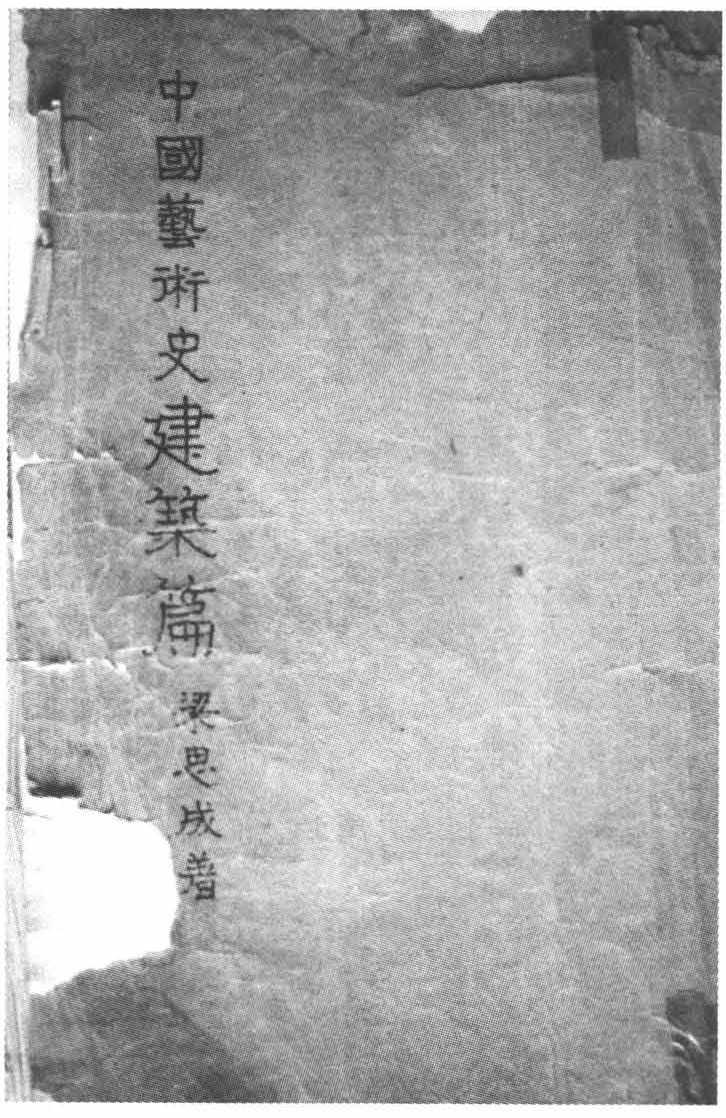 中國藝術史建築篇 梁思成著